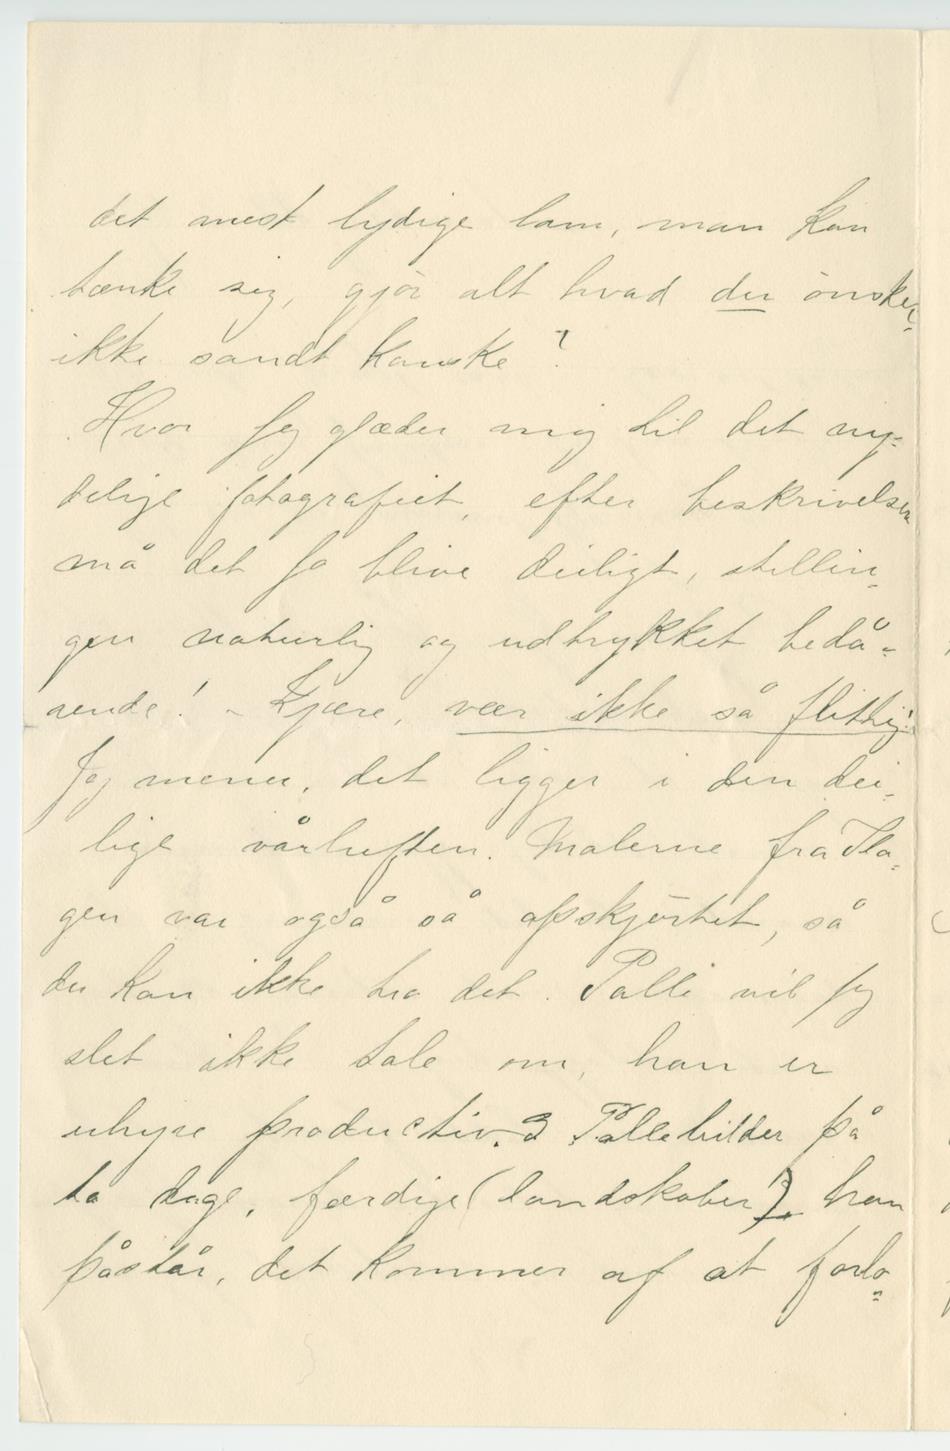 det mest lydige lam, man kan
tænke sig, gjör alt hvad du önsker,
ikke sandt kanske?
Hvor jeg glæder mig til det ny-
delige fotografiet, efter beskrivelsen
må det ja blive deiligt, stillin-
gen naturlig og udtrykket bedå-
rende! - Kjære, vær ikke så flittig!
Jeg mener, det ligger i den dei-
lige vårluften. Malerne fra Ska-
gen var også så opskjörtet, så
du kan ikke tro det. Palle vil jeg
slet ikke tale om, han er
uhyre productiv. 3 Pallebilder på
to dage, færdige (landskaber), han
påstår, det kommer af at forlo-